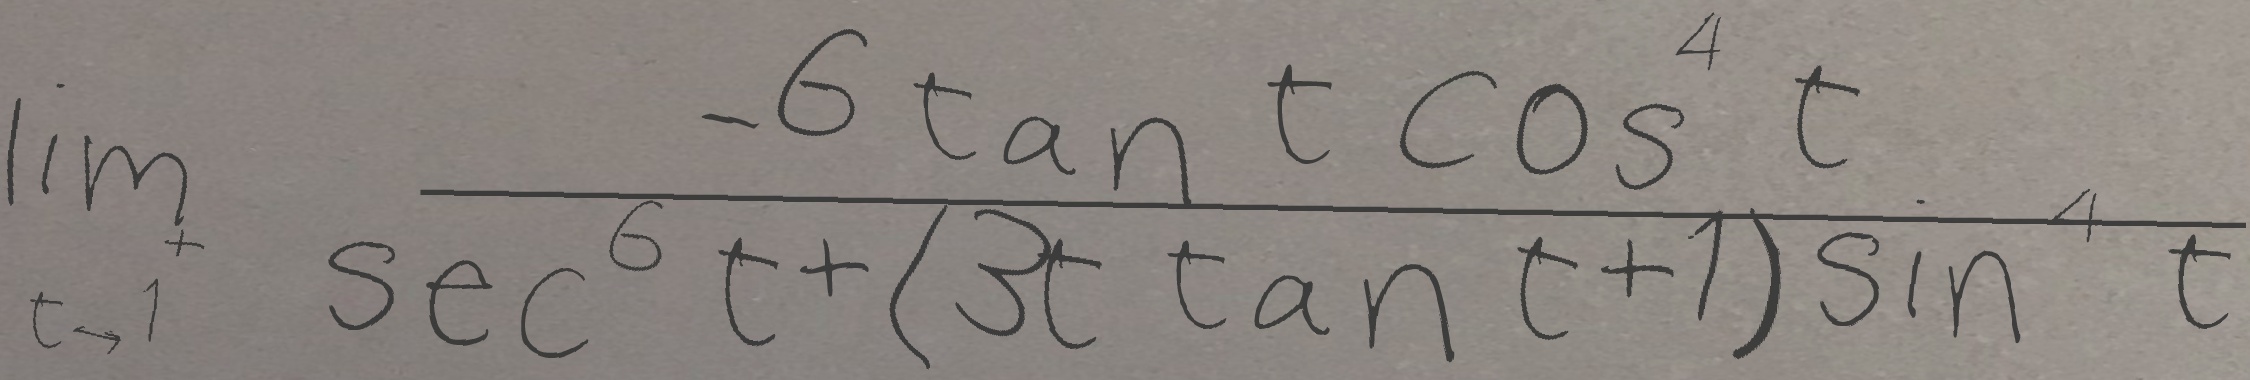 \lim_{t \to 1^{+}} \frac{-6 \tan t \cos^{4} t}{\sec^{6} t + (3t \tan t + 1) \sin^{4} t}